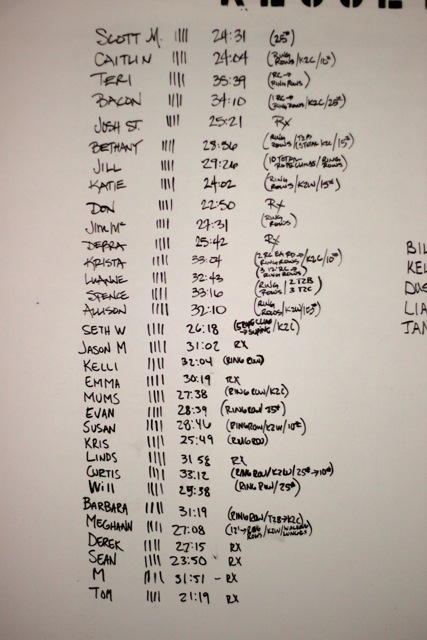 SCOTT M. |||| 24:31 (25#)
CAITLIN |||| 24:04 (RING ROWS/K2C/10#)
TERI |||| 35:39 (RC → RING ROWS)
BACON |||| 34:10 (1 RC → RING ROWS/K2C/25#)
JOSH ST. |||| 25:21 RX
BETHANY |||| 28:56 (RING ROWS/K2C/15#)
JILL |||| 29:26 (10 TOTAL ROPE CLIMBS/RING ROWS)
KATIE |||| 24:02 (RING ROWS/K2W/15#)
DON |||| 22:50 RX
JIM Mc |||| 27:31 (RING ROWS)
DEBRA |||| 25:42 RX
KRISTA |||| 33:04 (2 RC EA RD → RING ROWS/K2C/10#)
LUANNE |||| 32:43 (3 12' RC → RING ROWS)
SPENCE |||| 33:16 (RING ROWS/2 T2B 3 T2C)
ALLISON |||| 32:10 (RING ROWS/K2W/15#)
SETH W |||| 26:18 (ROPE CLIMB → /K2C)
JASON M |||| 31:02 RX
KELLI |||| 32:04 (RING ROW)
EMMA |||| 30:19 RX
MUMS |||| 27:38 (RING ROW/K2C)
EVAN |||| 28:39 (RING ROW/25#)
SUSAN |||| 28:46 (RING ROW/K2W/10#)
KRIS |||| 25:49 (RING ROW)
LINDS |||| 31:58 RX
CURTIS |||| 33:12 (RING ROW/K2W/25# → 10#)
WILL |||| 29:38 (RING ROW/25#)
BARBARA |||| 31:19 (RING ROW/T2B → K2C)
MEGHANN |||| 27:08 (12' → RING ROWS/K2W/WALKING LUNGES)
DEREK |||| 27:15 RX
SEAN |||| 23:50 RX
M |||| 31:51 - RX
TOM |||| 21:19 RX
BIL
KEL
DUS
LIA
JAN